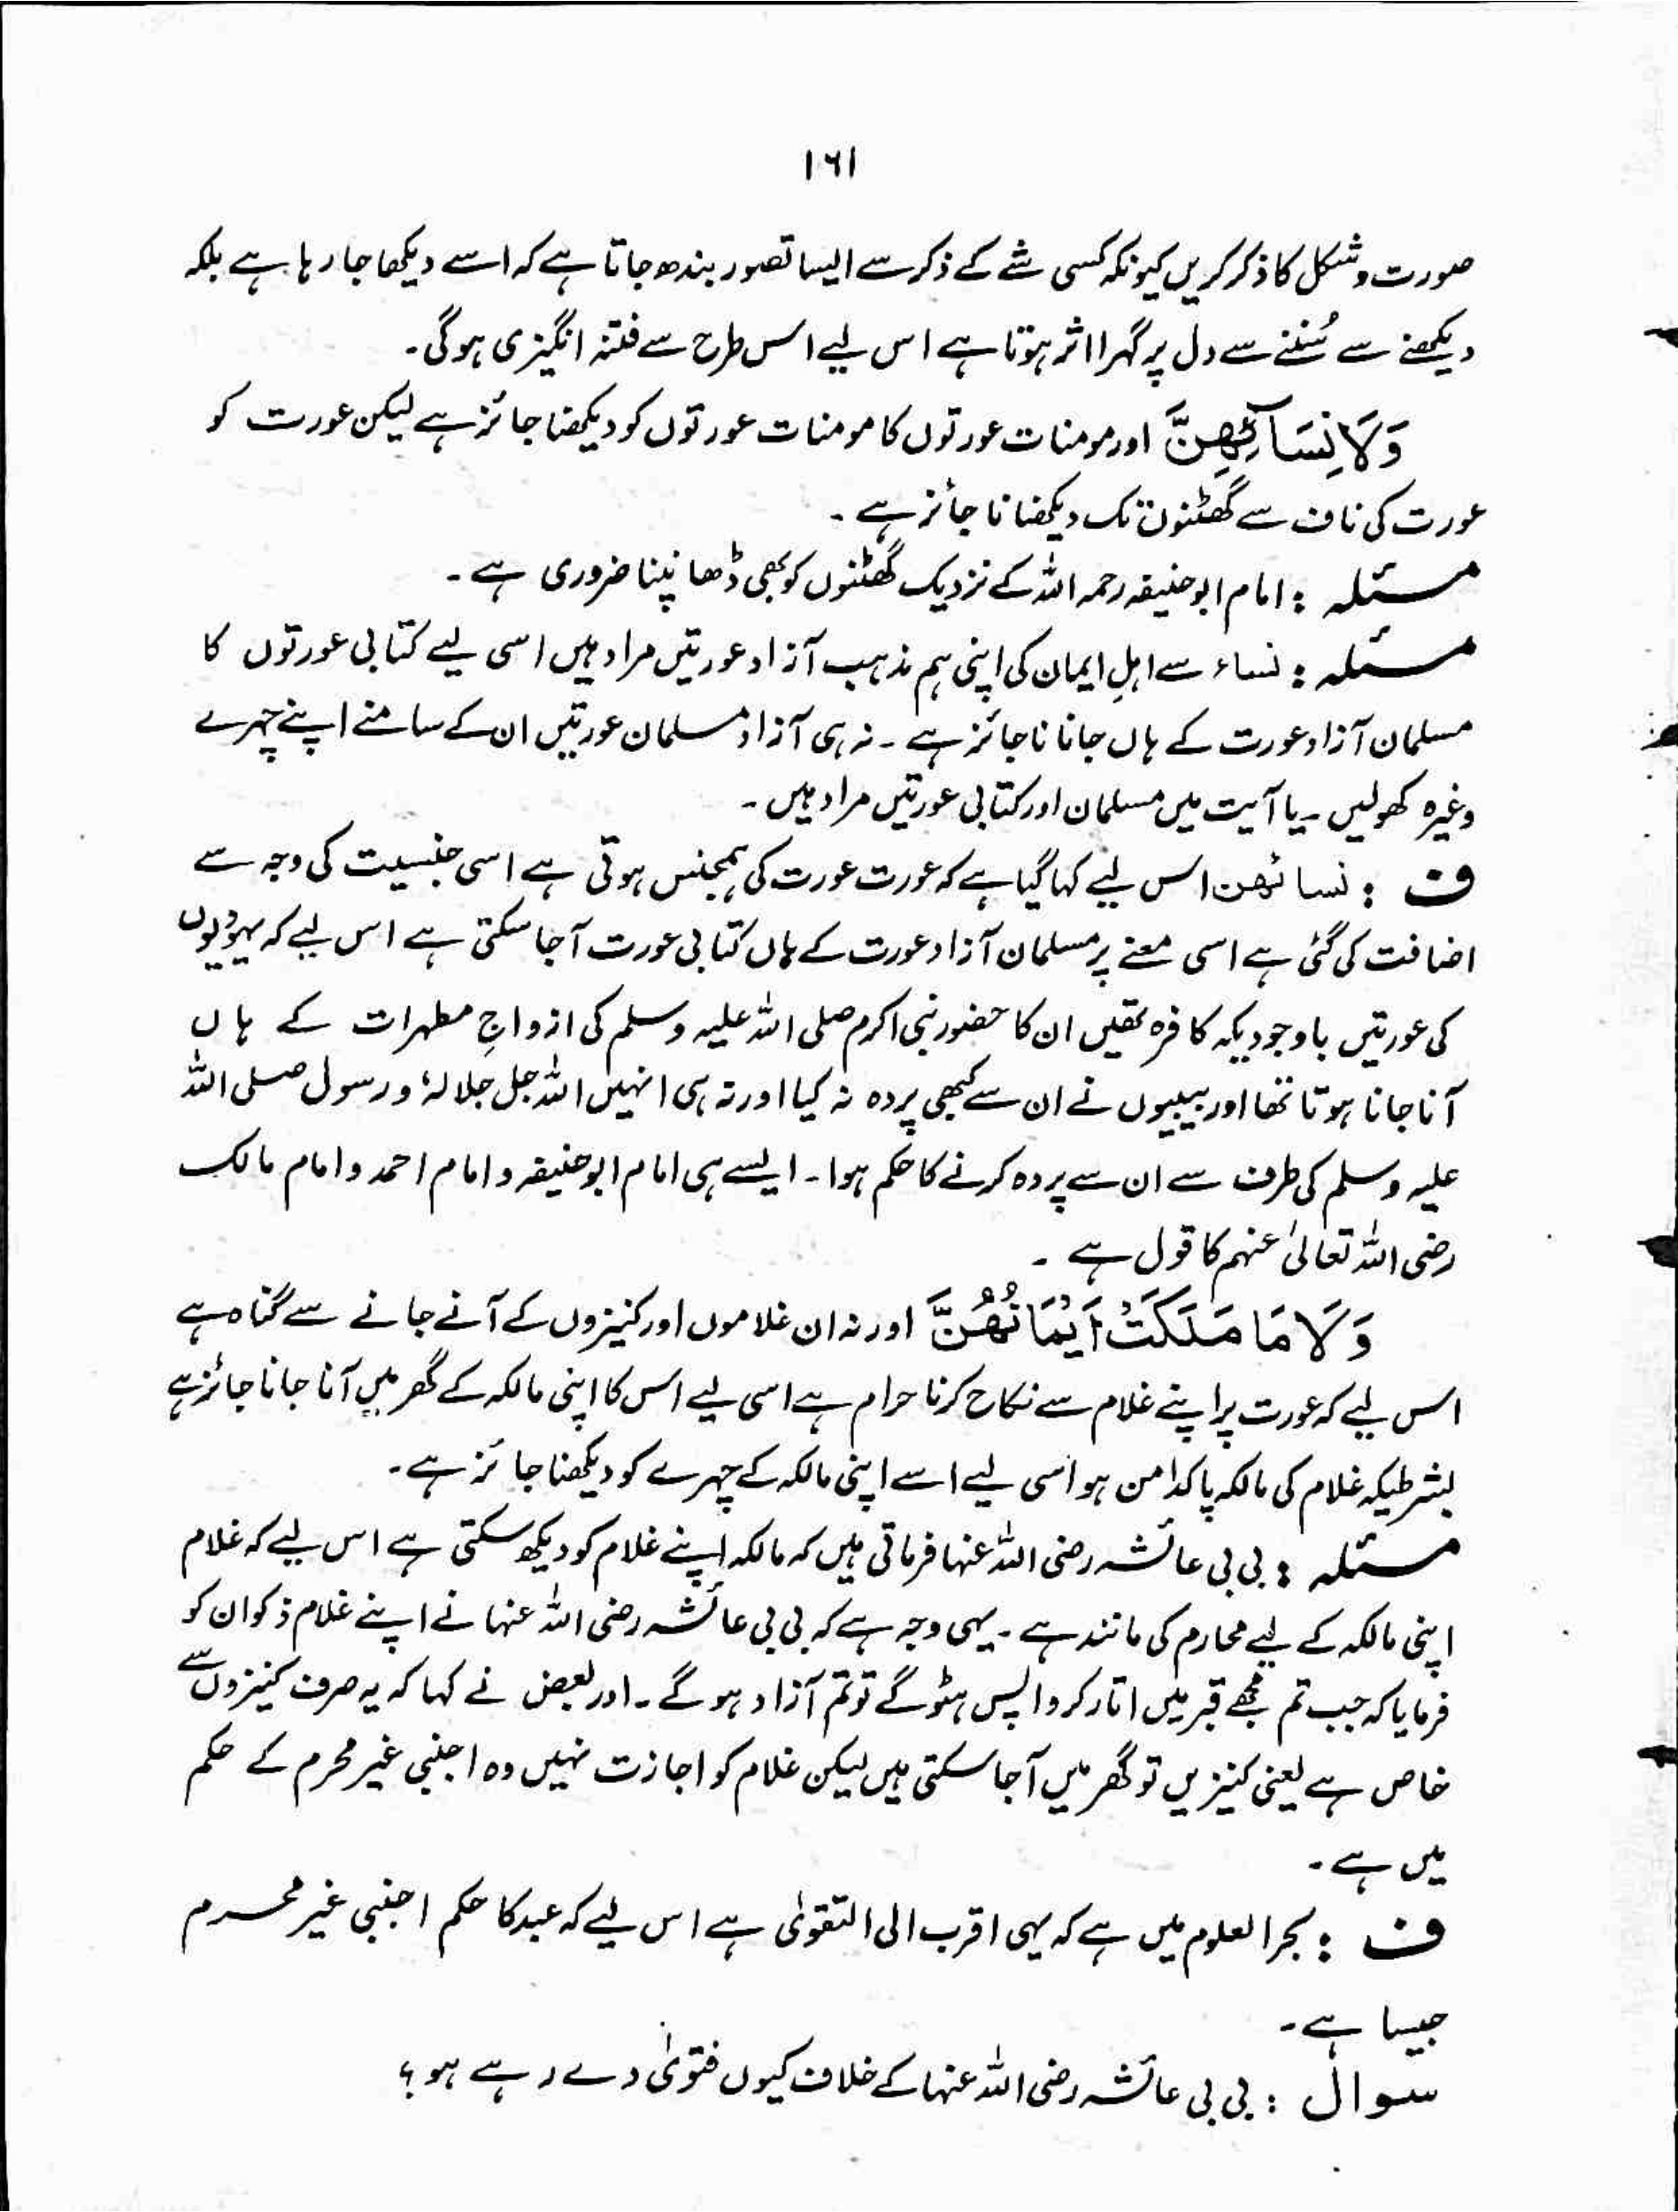 ۱۶۱
صورت و شکل کا ذکر کریں کیونکہ کسی شے کے ذکر سے ایسا تصور بندھ جاتا ہے کہ اسے دیکھا جا رہا ہے بلکہ
دیکھنے سے سُننے سے دل پر گہرا اثر ہوتا ہے اس لیے اس طرح سے فتنہ انگیزی ہوگی۔
وَلَا نِسَآئِهِنَّ اور مومنات عورتوں کا مومنات عورتوں کو دیکھنا جائز ہے لیکن عورت کو
عورت کی ناف سے گھٹنوں تک دیکھنا ناجائز ہے ۔
مسئلہ : امام ابوحنیفہ رحمہ اللہ کے نزدیک گھٹنوں کو بھی ڈھانپنا ضروری ہے ۔
مسئلہ : نساء سے اہلِ ایمان کی اپنی ہم مذہب آزاد عورتیں مراد ہیں اسی لیے کتابی عورتوں کا
مسلمان آزاد عورت کے ہاں جانا ناجائز ہے ۔ نہ ہی آزاد مسلمان عورتیں ان کے سامنے اپنے چہرے
وغیرہ کھولیں ۔ یا آیت میں مسلمان اور کتابی عورتیں مراد ہیں ۔
ف : نسائھن اس لیے کہا گیا ہے کہ عورت عورت کی ہمجنس ہوتی ہے اسی جنسیت کی وجہ سے
اضافت کی گئی ہے اسی معنے پر مسلمان آزاد عورت کے ہاں کتابی عورت آ جا سکتی ہے اس لیے کہ یہودیوں
کی عورتیں باوجودیکہ کافرہ تھیں ان کا حضور نبی اکرم صلی اللہ علیہ وسلم کی ازواجِ مطہرات کے ہاں
آنا جانا ہوتا تھا اور بیبیوں نے ان سے کبھی پردہ نہ کیا اور نہ ہی انہیں اللہ جل جلالہٗ و رسول صلی اللہ
علیہ وسلم کی طرف سے ان سے پردہ کرنے کا حکم ہوا ۔ ایسے ہی امام ابوحنیفہ و امام احمد و امام مالک
رضی اللہ تعالیٰ عنہم کا قول ہے ۔
وَلَا مَا مَلَكَتْ اَيْمَانُهُنَّ اور نہ ان غلاموں اور کنیزوں کے آنے جانے سے گناہ ہے
اس لیے کہ عورت پر اپنے غلام سے نکاح کرنا حرام ہے اسی لیے اس کا اپنی مالکہ کے گھر میں آنا جانا جائز ہے
بشرطیکہ غلام کی مالکہ پاکدامن ہو اسی لیے اسے اپنی مالکہ کے چہرے کو دیکھنا جائز ہے۔
مسئلہ : بی بی عائشہ رضی اللہ عنہا فرماتی ہیں کہ مالکہ اپنے غلام کو دیکھ سکتی ہے اس لیے کہ غلام
اپنی مالکہ کے لیے محارم کی مانند ہے ۔ یہی وجہ ہے کہ بی بی عائشہ رضی اللہ عنہا نے اپنے غلام ذکوان کو
فرمایا کہ جب تم مجھے قبر میں اتار کر واپس ہٹو گے تو تم آزاد ہو گے ۔ اور بعض نے کہا کہ یہ صرف کنیزوں سے
خاص ہے یعنی کنیزیں تو گھر میں آ جا سکتی ہیں لیکن غلام کو اجازت نہیں وہ اجنبی غیر محرم کے حکم
میں ہے ۔
ف : بحر العلوم میں ہے کہ یہی اقرب الی التقویٰ ہے اس لیے کہ عبد کا حکم اجنبی غیر محرم
جیسا ہے ۔
سوال : بی بی عائشہ رضی اللہ عنہا کے خلاف کیوں فتویٰ دے رہے ہو ؟